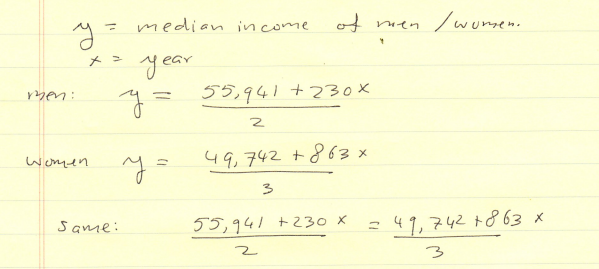 y = median income of men / women.
x = year
men: y = 55,941 + 230 x / 2
women y = 49,742 + 863 x / 3
Same: 55,941 + 230 x / 2 = 49,742 + 863 x / 3